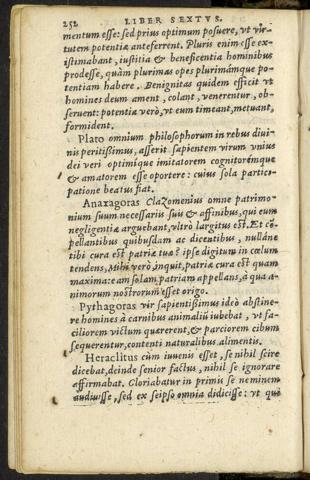 252 LIBER SEXTVS.
mentum esse: sed prius optimum posuere, vt vir-
tutem potentiæ anteferrent. Pluris enim esse ex-
istimabant, iustitia & beneficentia hominibus
prodesse, quàm plurimas opes plurimámque po-
tentiam habere. Benignitas quidem efficit vt
homines deum ament, colant, venerentur, ob-
seruent: potentia verò, vt eum timeant, metuant,
formident.
Plato omnium philosophorum in rebus diui-
nis peritissimus, asserit sapientem virum vnius
dei veri optimíque imitatorem cognitorémque
& amatorem esse oportere: cuius sola partici-
patione beatus fiat.
Anaxagoras Clazomenius omne patrimo-
nium suum necessariis suis & affinibus, qui eum
negligentiæ arguebant, vltrò largitus est. Et cõ-
pellantibus quibusdam ac dicentibus, nulláne
tibi cura est patriæ tuæ? ipse digitum in cœlum
tendens, Mihi verò, inquit, patriæ cura est quàm
maxima: eam solam patriam appellans, à qua a-
nimorum nostrorum esset origo.
Pythagoras vir sapientissimus ideò abstine-
re homines à carnibus animaliũ iubebat, vt fa-
ciliorem victum quærerent, & parciorem cibum
sequerentur, contenti naturalibus alimentis.
Heraclitus cùm iuuenis esset, se nihil scire
dicebat, deinde senior factus, nihil se ignorare
affirmabat. Gloriabatur in primis se neminem
audiuisse, sed ex seipso omnia didicisse: vt quæ